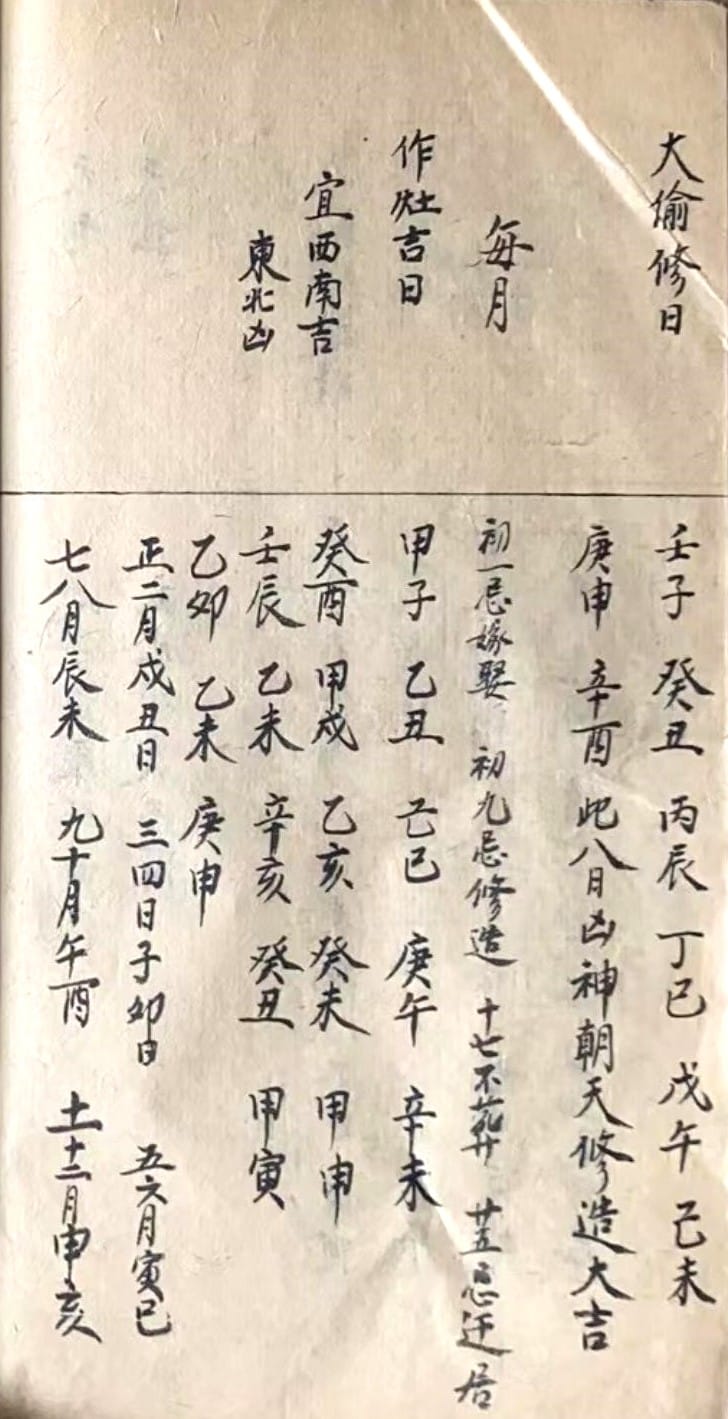 大偷修日
壬子 癸丑 丙辰 丁巳 戊午 己未
庚申 辛酉 此八日凶神朝天修造大吉
每月
初一忌嫁娶 初九忌修造 十七不葬 廿五忌迁居
作灶吉日
甲子 乙丑 己巳 庚午 辛未
宜西南吉
癸酉 甲戌 乙亥 癸未 甲申
東北凶
壬辰 乙未 辛亥 癸丑 甲寅
乙卯 乙未 庚申
正二月戌丑日 三四日子卯日 五六月寅巳
七八月辰未 九十月午酉 十一十二月申亥